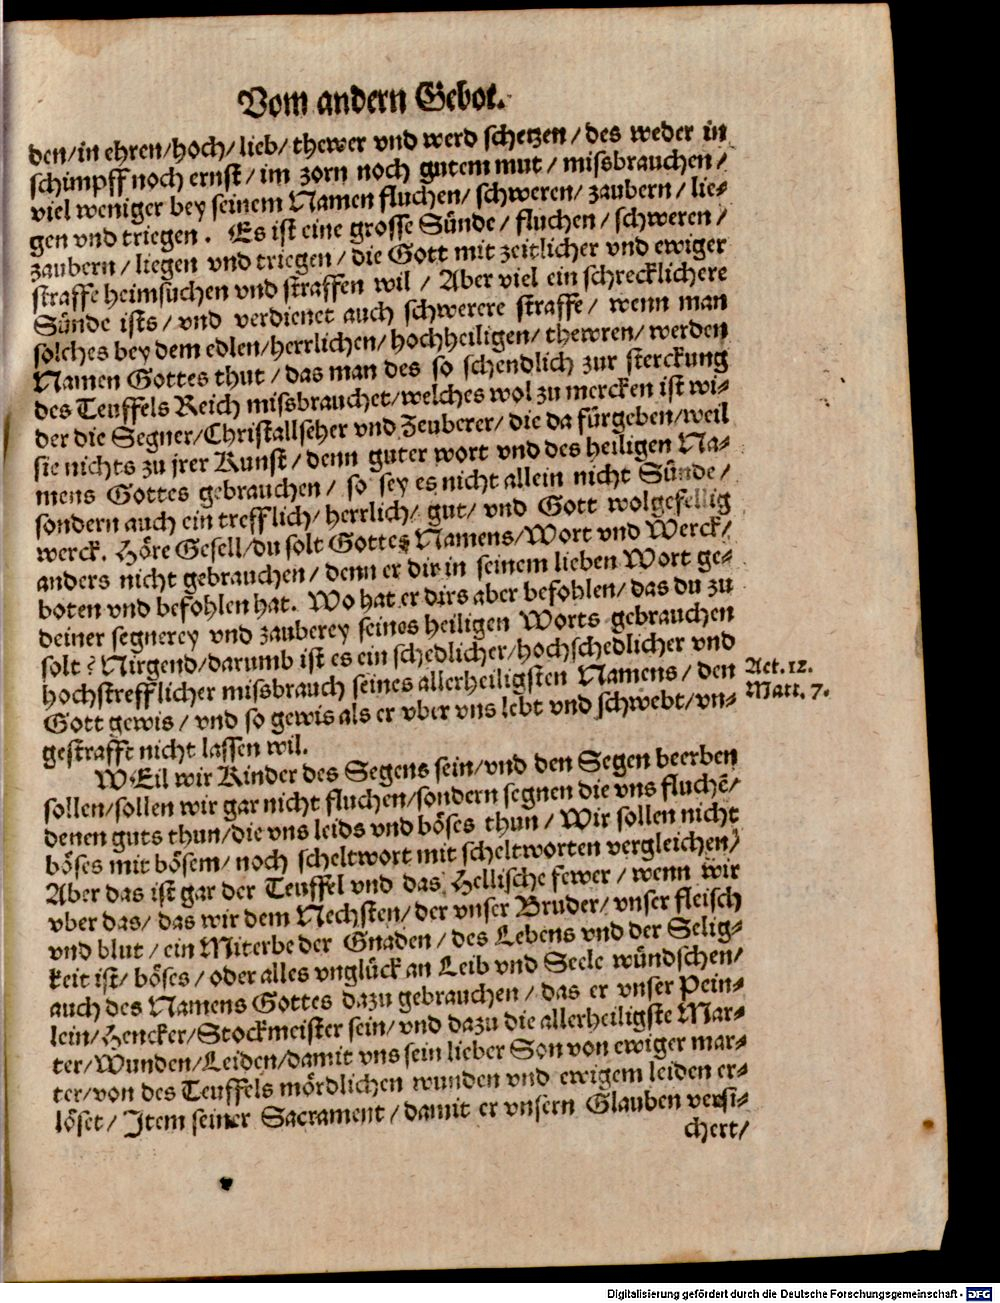 Vom andern Gebot.
den/in ehren/hoch/lieb/thewer vnd werd schetzen/des weder in
schimpff noch ernst/im zorn noch gutem mut/missbrauchen/
viel weniger bey seinem Namen fluchen/schweren/zaubern/lie-
gen vnd triegen. Es ist eine grosse Sünde/fluchen/schweren/
zaubern/liegen vnd triegen/die Gott mit zeitlicher vnd ewiger
straffe heimsuchen vnd straffen wil/Aber viel ein schrecklichere
Sünde ists/vnd verdienet auch schwerere straffe/wenn man
solches bey dem edlen/herrlichen/hochheiligen/thewren/werden
Namen Gottes thut/das man des so schendlich zur sterckung
des Teuffels Reich missbrauchet/welches wol zu mercken ist wi-
der die Segner/Christallseher vnd Zeuberer/die da fürgeben/weil
sie nichts zu jrer Kunst/denn guter wort vnd des heiligen Na-
mens Gottes gebrauchen/so sey es nicht allein nicht Sünde/
sondern auch ein trefflich/herrlich/gut/vnd Gott wolgefellig
werck. Höre Gesell/du solt Gottes Namens/Wort vnd Werck/
anders nicht gebrauchen/denn er dir in seinem lieben Wort ge-
boten vnd befohlen hat. Wo hat er dirs aber befohlen/das du zu
deiner segnerey vnd zauberey seines heiligen Worts gebrauchen
solt? Nirgend/darumb ist es ein schedlicher/hochschedlicher vnd
hochstrefflicher missbrauch seines allerheiligsten Namens/den
Act. 12.
Gott gewis/vnd so gewis als er vber vns lebt vnd schwebt/vn-
Matt. 7.
gestrafft nicht lassen wil.
WEil wir Kinder des Segens sein/vnd den Segen beerben
sollen/sollen wir gar nicht fluchen/sondern segnen die vns fluchē/
denen guts thun/die vns leids vnd böses thun/Wir sollen nicht
böses mit bösem/noch scheltwort mit scheltworten vergleichen/
Aber das ist gar der Teuffel vnd das Hellische fewer/wenn wir
vber das/das wir dem Nechsten/der vnser Bruder/vnser fleisch
vnd blut/ein Miterbe der Gnaden/des Lebens vnd der Selig-
keit ist/böses/oder alles vnglück an Leib vnd Seele wündschen/
auch des Namens Gottes dazu gebrauchen/das er vnser Pein-
lein/Hencker/Stockmeister sein/vnd dazu die allerheiligste Mar-
ter/Wunden/Leiden/damit vns sein lieber Son von ewiger mar-
ter/von des Teuffels mördlichen wunden vnd ewigem leiden er-
löset/Item seiner Sacrament/damit er vnsern Glauben versi-
chert/
Digitalisierung gefördert durch die Deutsche Forschungsgemeinschaft - DFG